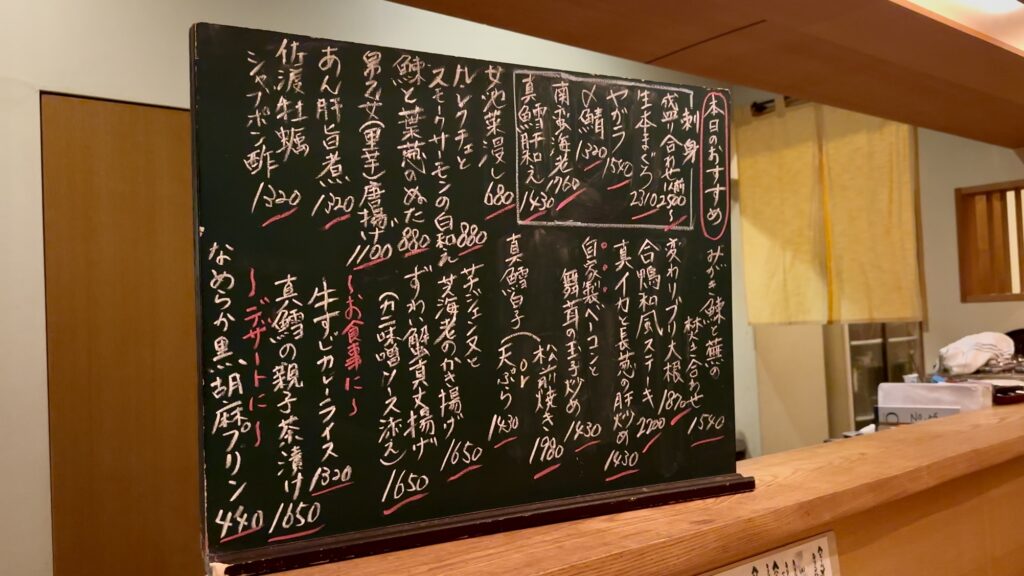 本日のおすすめ
「刺身
盛り合わせ一人前2500〜
生本まぐろ2310
やがら1550
〆鯖1320
南蛮海老1760
真鱈肝和え1430
女池菜浸し680
ル レクチェと
スモークサーモンの白和え880
鰊と葉葱のぬた880
帛乙女(里芋)唐揚げ1100
あん肝旨煮1320
佐渡牡蠣
シャブポン酢1320
みがき鰊と蕪の
炊き合わせ1540
変わりブリ大根1870
合鴨和風ステーキ2200
真イカと長葱の肝炒め1430
自家製ベーコンと
舞茸の玉子炒め1430
真鱈白子
松前焼き1980
or
天ぷら1430
芝海老のかき揚げ1650
ずわい蟹真丈揚げ
(カニ味噌ソース添え)1650
〜お食事に〜
牛すじカレーライス1320
真鱈の親子茶漬け1650
〜デザートに〜
なめらか黒胡麻プリン440